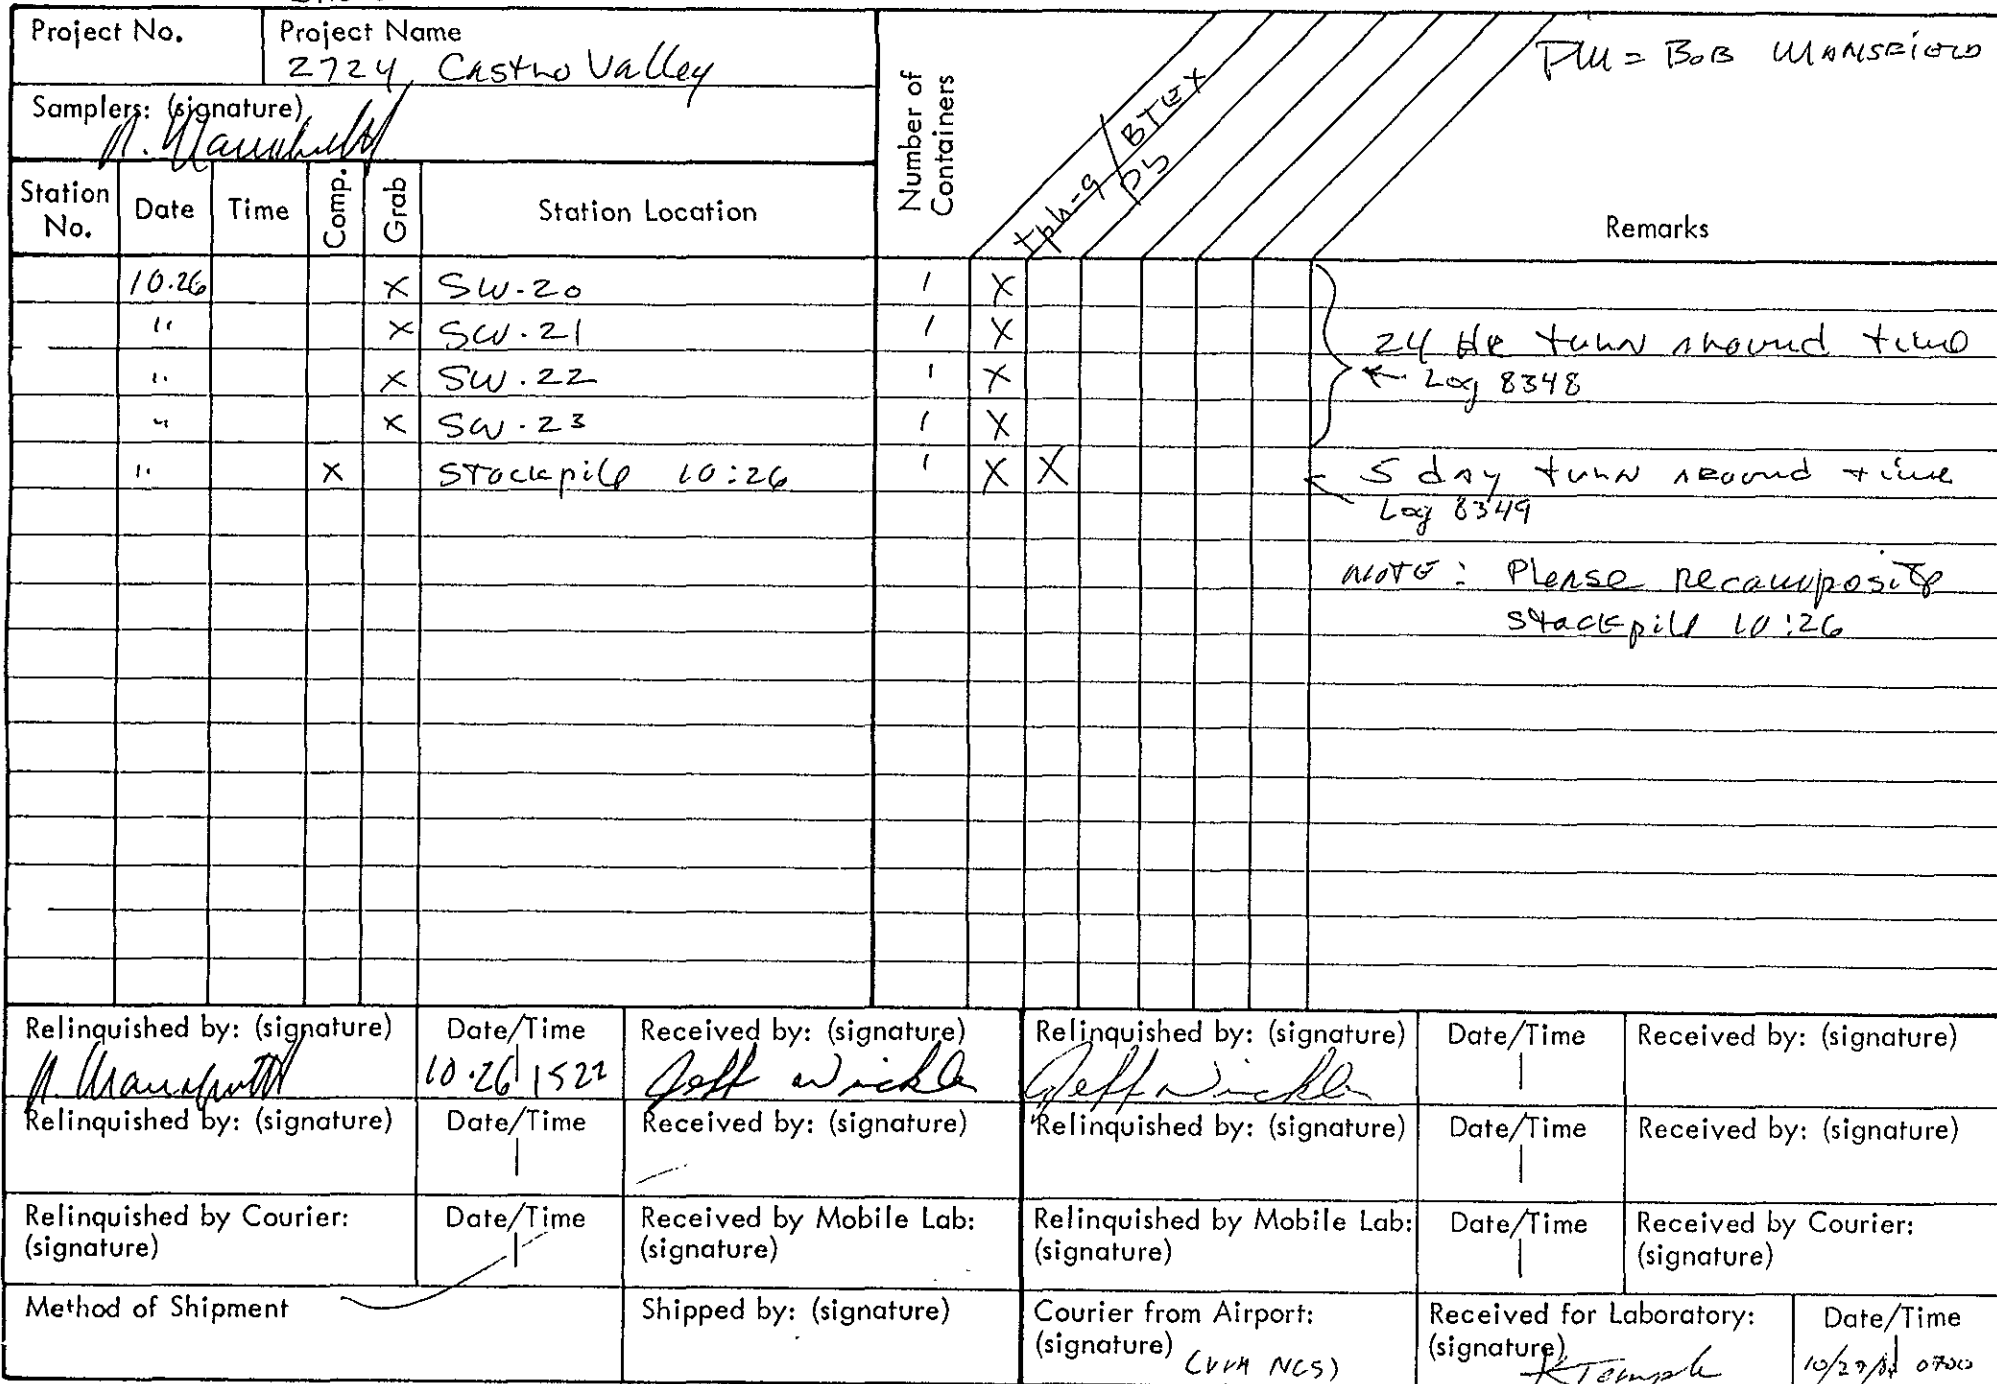 Project No.
Project Name
2724 Castro Valley
PM = BOB MANSFIELD
Samplers: (signature)
Number of Containers
tph-g / BTEX
Pb
Station No.
Date
Time
Comp.
Grab
Station Location
Remarks
10.26 X SW-20 1 X
" X SW.21 1 X
24 HR turn around time
" X SW.22 1 X
← Log 8348
" X SW.23 1 X
" X Stockpile 10:26 1 X X
5 day turn around time
Log 8349
NOTE: Please recomposite
stackpile 10:26
Relinquished by: (signature)
Date/Time
10.26 | 1522
Received by: (signature)
Jeff Winkler
Relinquished by: (signature)
Jeff Winkler
Date/Time
Received by: (signature)
Relinquished by: (signature)
Date/Time
Received by: (signature)
Relinquished by: (signature)
Date/Time
Received by: (signature)
Relinquished by Courier: (signature)
Date/Time
Received by Mobile Lab: (signature)
Relinquished by Mobile Lab: (signature)
Date/Time
Received by Courier: (signature)
Method of Shipment
Shipped by: (signature)
Courier from Airport: (signature)
NCS)
Received for Laboratory: (signature)
KTemple
Date/Time
0700